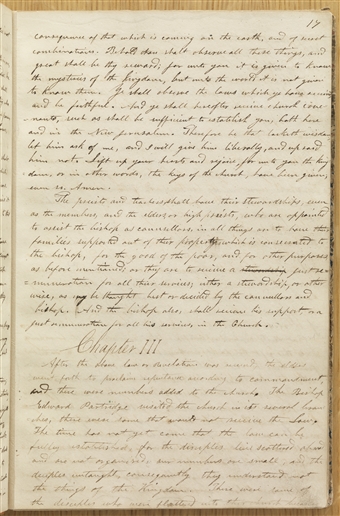 17
consequence of that which is coming on the earth, and of secret
combinations. Behold thou shalt observe all these things, and
great shall be thy reward; for unto you it is given to know
the mysteries of the kingdom, but unto the world it is not given
to know them. Ye shall observe the laws which ye have received
and be faithful. And ye shall hereafter receive church cove-
nants, such as shall be sufficient to establish you, both here
and in the New Jerusalem. Therefore he that lacketh wisdom
let him ask of me, and I will give him liberally, and upbraid
him not. Lift up your hearts and rejoice, for unto you the king-
dom, or in other words, the keys of the church, have been given,
even so. Amen.
The priests and teachers shall have their stewardships, even
as the members, and the elders or high priests, who are appointed
to assist the bishop as counsellors, in all things are to have their
families supported out of the property which is consecrated to
the bishop, for the good of the poor, and for other purposes
as before mentioned, or they are to receive a stewardship just re-
muneration for all their services; either a stewardship, or other
wise, as may be thought best or decided by the counsellors and
bishop. And the bishop also, shall receive his support or a
just remuneration for all his services, in the Church.
Chapter III
After the above law or revelation was received, the elders
went forth to proclaim repentance according to commandment
and there were numbers added to the church. The Bishop
Edward Partridge visited the church in its several bran-
ches, there were some that would not receive the Law.
The time has not yet come that the law can be
fully established, for the disciples live scattered abroad
and are not organized, our numbers are small, and the
disciples untaught, consequently they understand not
the things of the Kingdom. There were some of
the disciples who were flattered into the church